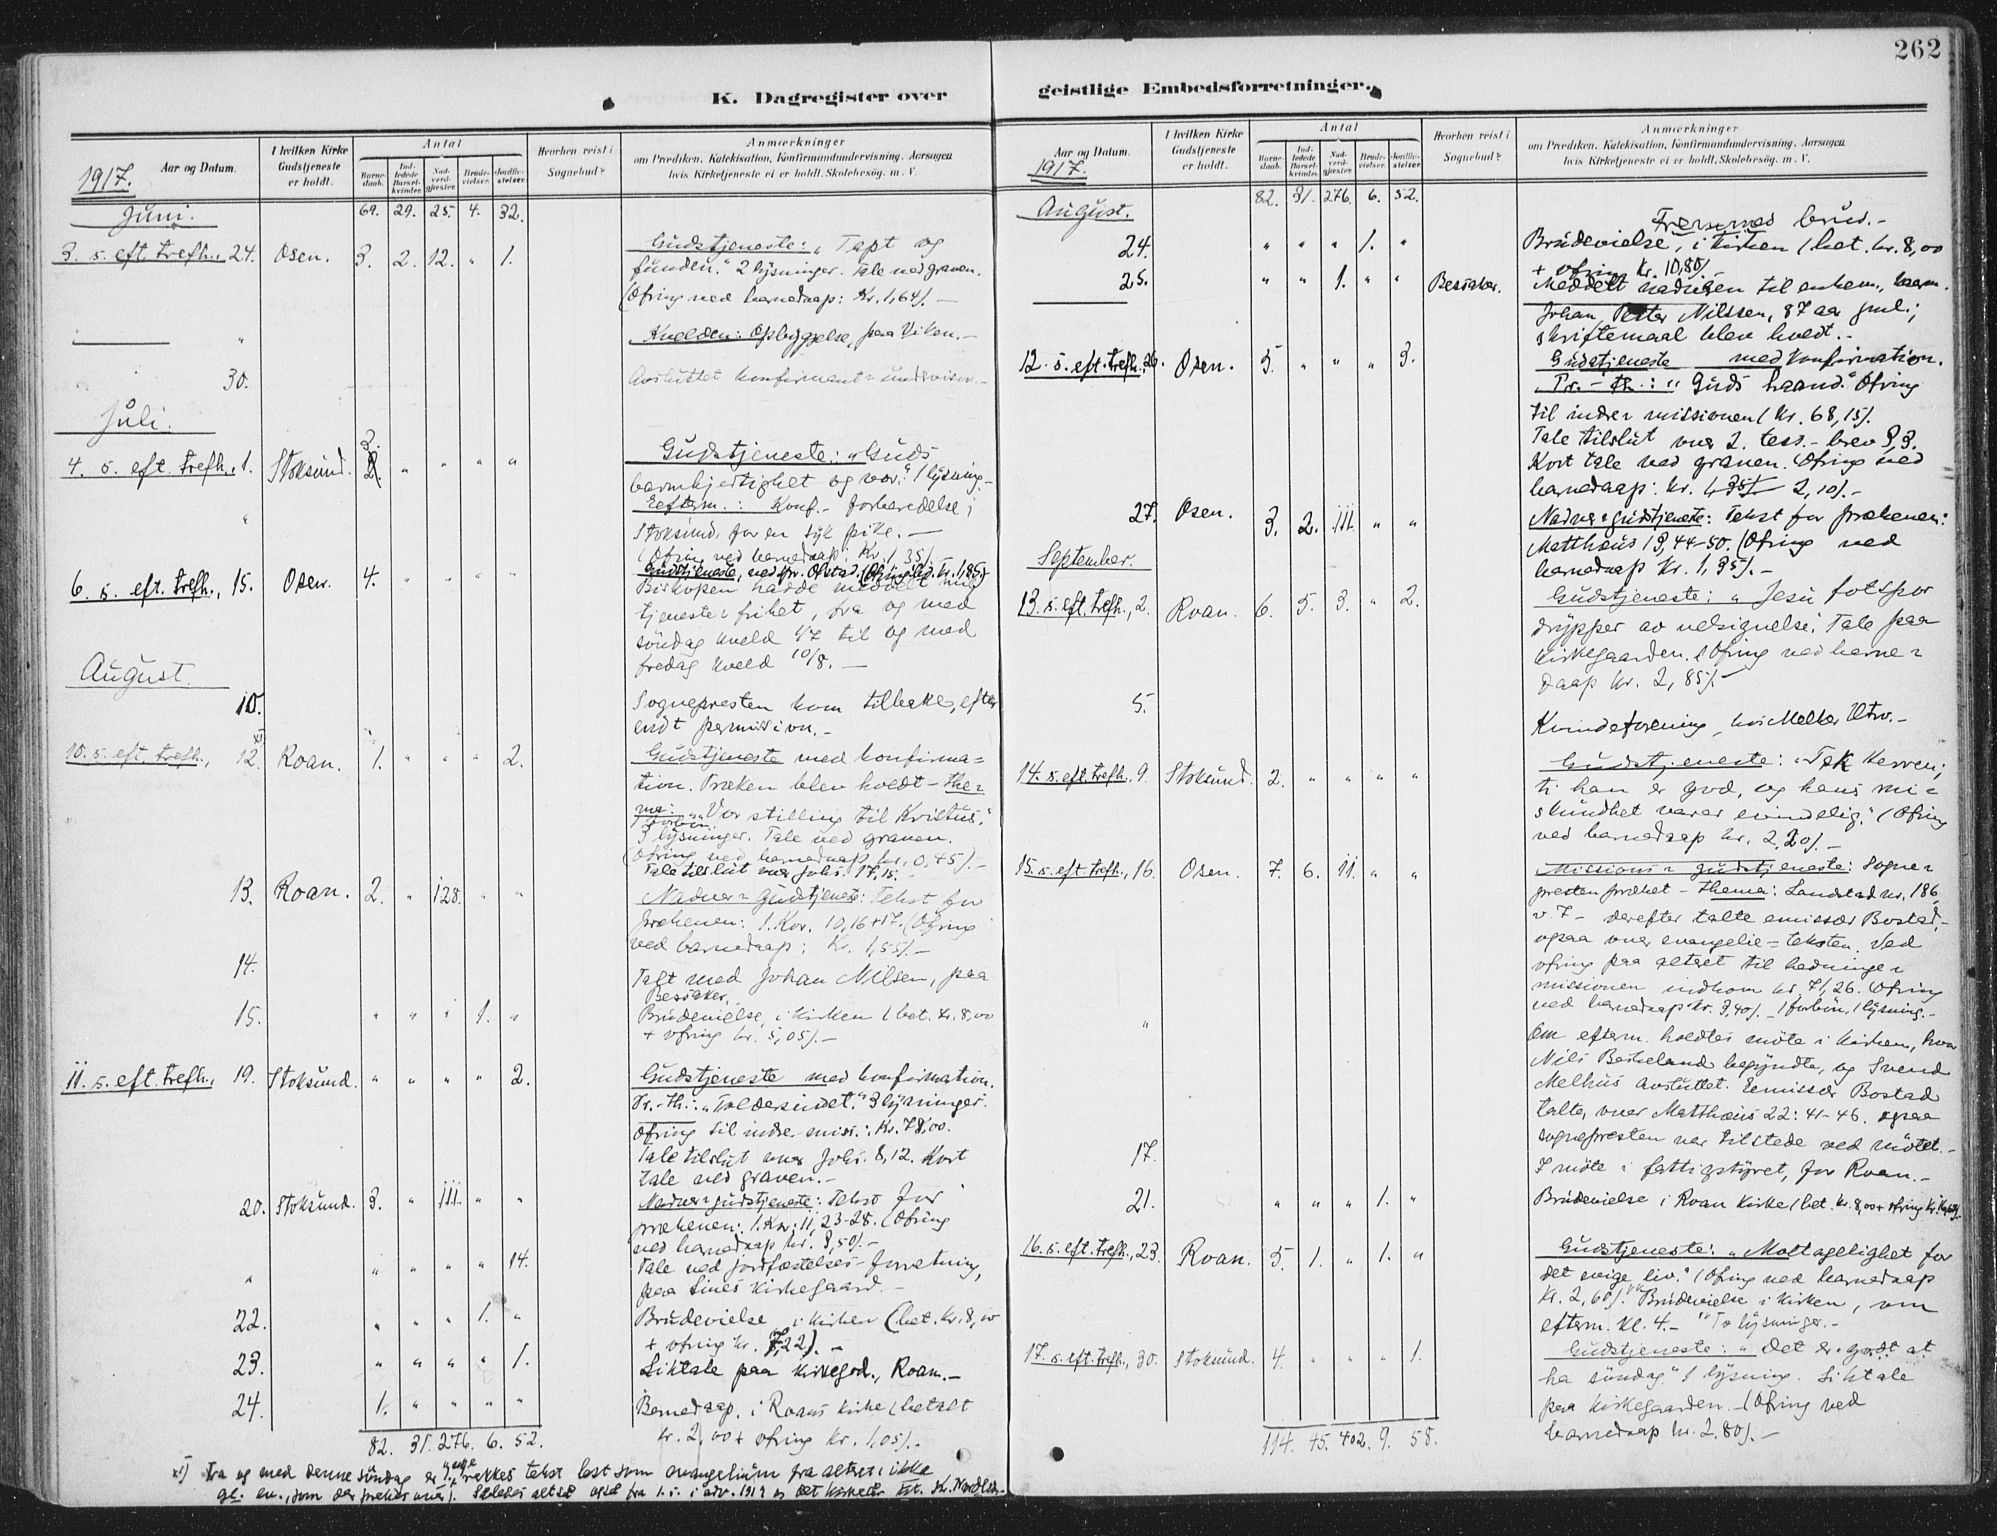 262
K. Dagregister over geistlige Embedsforretninger.
1917. Aar og Datum.
I hvilken Kirke Gudstjeneste er holdt.
Antal
Barne-daab. Ind-ledede Barsel-kvinder. Nad-verd-gjæster. Brude-vielser. Jordfæ-stelser.
Hvorhen reist i Sognebud?
Anmærkninger
om Prædiken, Katekisation, Konfirmandundervisning, Aarsagen
hvis Kirketjeneste ei er holdt, Skolebesøg, m. V.
Juni. 69. 29. 25. 4. 32.
3. s. eft. trefh., 24. Osen. 3. 2. 12. " 1. Gudstjeneste: "Tapt og
funden." 2 lysninger. Tale ved graven.
(Ofring ved barnedaap: Kr. 1,64). —
" Kvelden: Opbyggelse, paa Viken. —
30. Avsluttet konfirmant-undervisn. —
Juli.
4. s. eft. trefh., 1. Stoksund. 3. " " " " Gudstjeneste: "Guds
barmhjertighet og vor." 1 lysning. —
" Efterm.: Konf.-forberedelse i
Stoksund, for en syk pike. —
(Ofring ved barnedaap: Kr. 1,35).
6. s. eft. trefh., 15. Osen. 4. " " " " Gudstjeneste, ved pr. Okstad. (Ofring kr. 1,85)
Biskopen hadde
tjenestefrihet, fra og med
söndag kveld til og med
fredag kveld 10/8. —
August.
10. Sognepresten kom tilbake, efter
endt permission. —
10. s. eft. trefh., 12. x) Roan. 1. " " " 2. Gudstjeneste med konfirma=
tion. Præken blev holdt – the=
ma: "Vor stilling til Kristus."
3 lysninger. Tale ved graven.
(Ofring ved barnedaap kr. 0,45). —
Tale tilslut over Johs. 17,15. —
13. Roan. 2. " 128. " " Nadver=gudstjeneste: Tekst for
prækenen: 1. Kor. 10,16+17. (Ofring
ved barnedaap: Kr. 1,55). —
14. Talt med Johan Nilsen, paa
Bessaker.
15. " " " 1. " Brudevielse, i kirken (bet. kr. 8,00
+ ofring kr. 5,05). —
11. s. eft. trefh., 19. Stoksund. " " " " 2. Gudstjeneste med konfirmation.
Pr.-th.: "Toldersindet." 3 lysninger.
Ofring til indre-miss.: Kr. 78,00.
Tale tilslut over Johs. 8,12. Kort
tale ved graven. —
20. Stoksund. 3. " 111. " " Nadver=gudstjeneste: Tekst for
prækenen: 1. Kor. 11,23-28. (Ofring
ved barnedaap kr. 3,50). —
" " " " " 14. Tale ved jordfæstelses-forretning,
paa Lines kirkegaard. —
22. " " " 1. " Brudevielse, i kirken (bet. kr. 8,00
+ ofring kr. 7,22). —
23. " " " " 1. Liktale paa kirkegd., Roan. —
24. 1. " " " " Barnedaap, i Roans kirke (betalt
kr. 2,00 + ofring kr. 1,05). —
82. 31. 276. 6. 52.
x) Fra og med denne söndag er rækkes tekst læst som evangelium fra alteret ikke
1917. Aar og Datum.
I hvilken Kirke Gudstjeneste er holdt.
Antal
Barne-daab. Ind-ledede Barsel-kvinder. Nad-verd-gjæster. Brude-vielser. Jordfæ-stelser.
Hvorhen reist i Sognebud?
Anmærkninger
om Prædiken, Katekisation, Konfirmandundervisning, Aarsagen
hvis Kirketjeneste ei er holdt, Skolebesøg, m. V.
August. 82. 31. 276. 6. 52.
24. " " " 1. " Brudevielse, i kirken (bet. kr. 8,00
+ ofring Kr. 10,80). —
25. " " 1. " " Bessaker. Meddelt nadveren til enkem.,
Johan Peter Nilssen, 87 aar gml.;
skriftemaal blev holdt. —
12. s. eft. trefh., 26. Osen. 5. " " " 3. Gudstjeneste med konfirmation.
Pr.-th.: "Guds haand." Ofring
til indre-missionen (Kr. 68,15).
Tale tilslut over 2. tess.-brev 3,3.
Kort tale ved graven. Ofring ved
barnedaap: kr. 2,10). —
27. Osen. 3. 2. 111. " " Nadver=gudstjeneste: Tekst for prækenen:
Matthæus 13,44-50. (Ofring ved
barnedaap Kr. 1,35). —
September.
13. s. eft. trefh., 2. Roan. 6. 5. 3. " 2. Gudstjeneste: "Jesu fotspor
drypper av velsignelse. Tale paa
kirkegaarden. (Ofring ved barne=
daap kr. 2,85). —
5. Kvindeforening, hos Melker Utro. —
14. s. eft. trefh., 9. Stoksund. 2. " " " " Gudstjeneste: "Tak Herren;
ti han er god, og hans mi=
skundhet varer evindelig." (Ofring
ved barnedaap kr. 2,20). —
15. s. eft. trefh., 16. Osen. 7. 6. 11. " " Missions=gudstjeneste: Sogne=
presten præket – thema: Landstad nr. 186,
v. 7 – derefter talte emissær Bostad, —
ogsaa over evangelie=teksten. Ved
ofring paa alteret til hedninge=
missionen indkom kr. 71,26. (Ofring
ved barnedaap kr. 3,40). — 1 forbön, 1 lysning. —
" Om efterm. holdtes möte i kirken, hvor
Nils Beskeland begyndte, og Svend
Melhus avsluttet. Emissær Bostad
talte, over Matthæus 22: 41-46. ogsaa
sognepresten var tilstede ved mötet. —
17. I möte i fattigstyret, for Roan. —
21. " " " 1. " Brudevielse i Roan kirke (bet. kr. 8,00 + ofring kr.
16. s. eft. trefh., 23. Roan. 5. 1. " 1. " Gudstjeneste: "Mottagelighet for
det evige liv." (Ofring ved barnedaap
kr. 2,60). Brudevielse i kirken, om
efterm. kl. 4. — To lysninger. —
17. s. eft. trefh., 30. Stoksund. 4. " " " 1. Gudstjeneste: "Det er godt at
ha söndag." 1 lysning. Liktale
paa kirkegaarden. — (Ofring ved
barnedaap kr. 2,80). —
114. 45. 402. 9. 58.